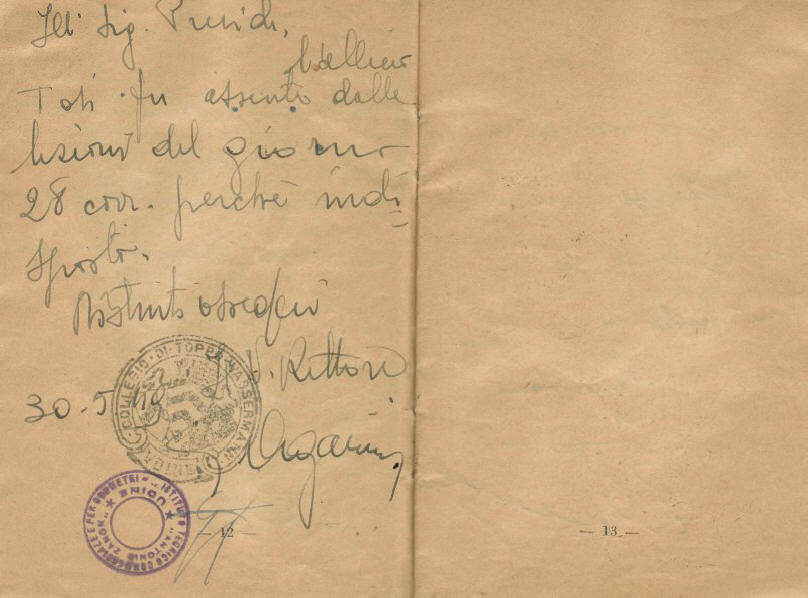 Ill. Sig. Preside,
l'allievo
Toti fu assente dalle
lezioni del giorno
28 corr. perchè indi-
sposto.
Distinti ossequi
Il V. Rettore
30-5-
COLLEGIO DI TOPPO WASSERMANN
ISTITUTO TECNICO COMMERCIALE E PER GEOMETRI
"ANTONIO ZANON"
UDINE
— 12 —
— 13 —